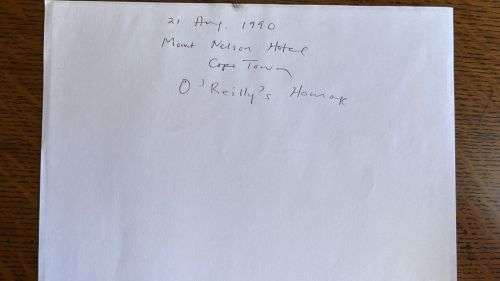 21 Aug. 1990
Mount Nelson Hotel
Cape Town
O'Reilly's